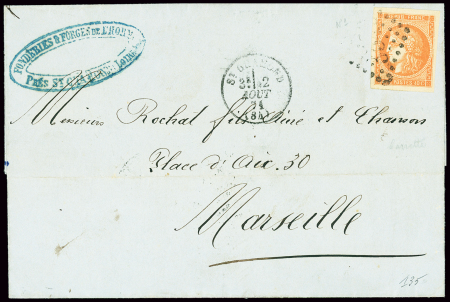 FONDERIES & FORGES DE L'HORME
PRÈS ST CHAMOND (Loire)
ST CHAMOND
2
AOUT
71
(84)
Messieurs Rochat fils Aîné et Chanson
Place d'Aix. 30
Marseille
195